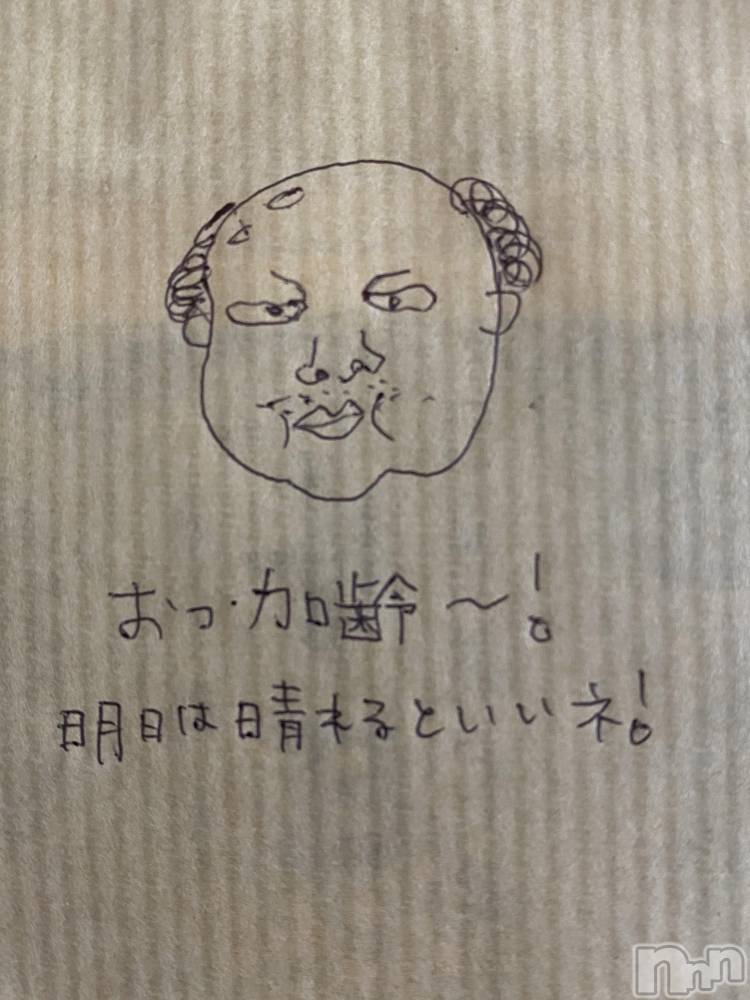 おっ・加齢〜！
明日は晴れるといいネ！
nnn